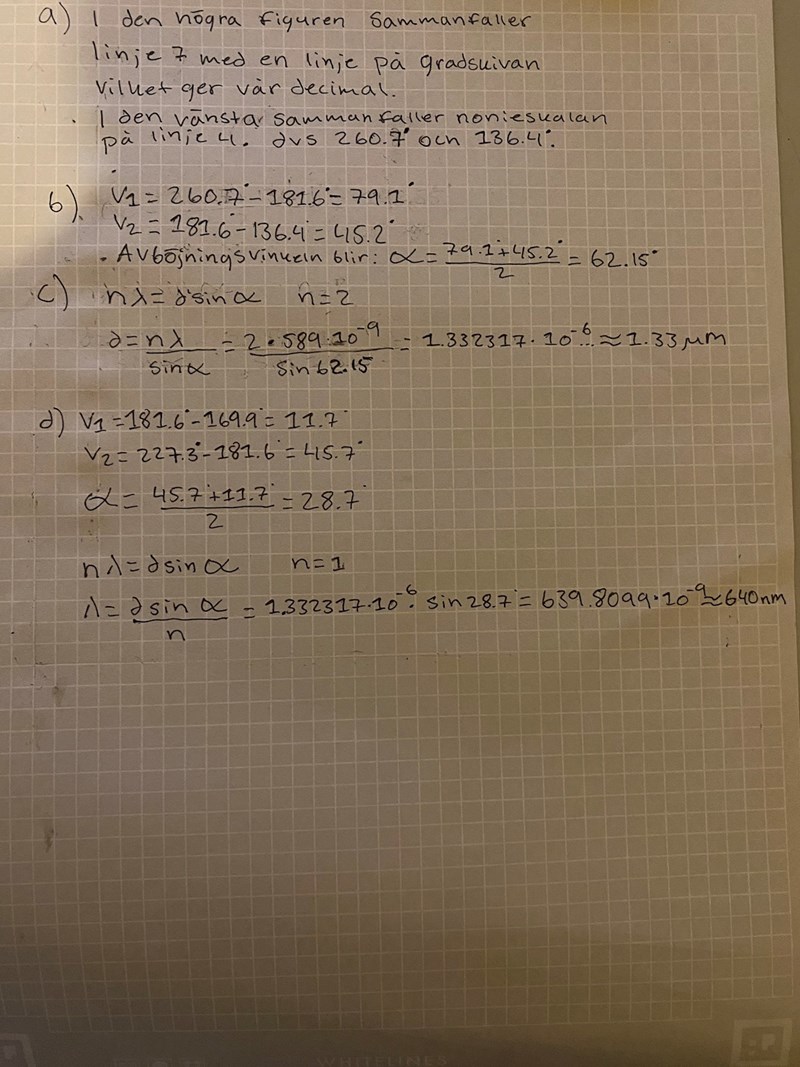 a) I den högra figuren sammanfaller
linje 7 med en linje på gradskivan
vilket ger vår decimal.
I den vänstar sammanfaller nonieskalan
på linje 4. dvs 260.7° och 136.4°.
b). V1 = 260.7° - 181.6° = 79.1°
V2 = 181.6° - 136.4° = 45.2°
Avböjningsvinkeln blir: α = (79.1° + 45.2°)/2 = 62.15°
c) nλ = d sin α n = 2
d = nλ/sin α = 2 · 589 · 10⁻⁹/sin 62.15° = 1.332317 · 10⁻⁶... ≈ 1.33 μm
d) V1 = 181.6° - 169.9° = 11.7°
V2 = 227.3° - 181.6° = 45.7°
α = (45.7° + 11.7°)/2 = 28.7°
nλ = d sin α n = 1
λ = d sin α/n = 1.332317 · 10⁻⁶ · sin 28.7° = 639.8099 · 10⁻⁹ ≈ 640 nm
WHITELINES